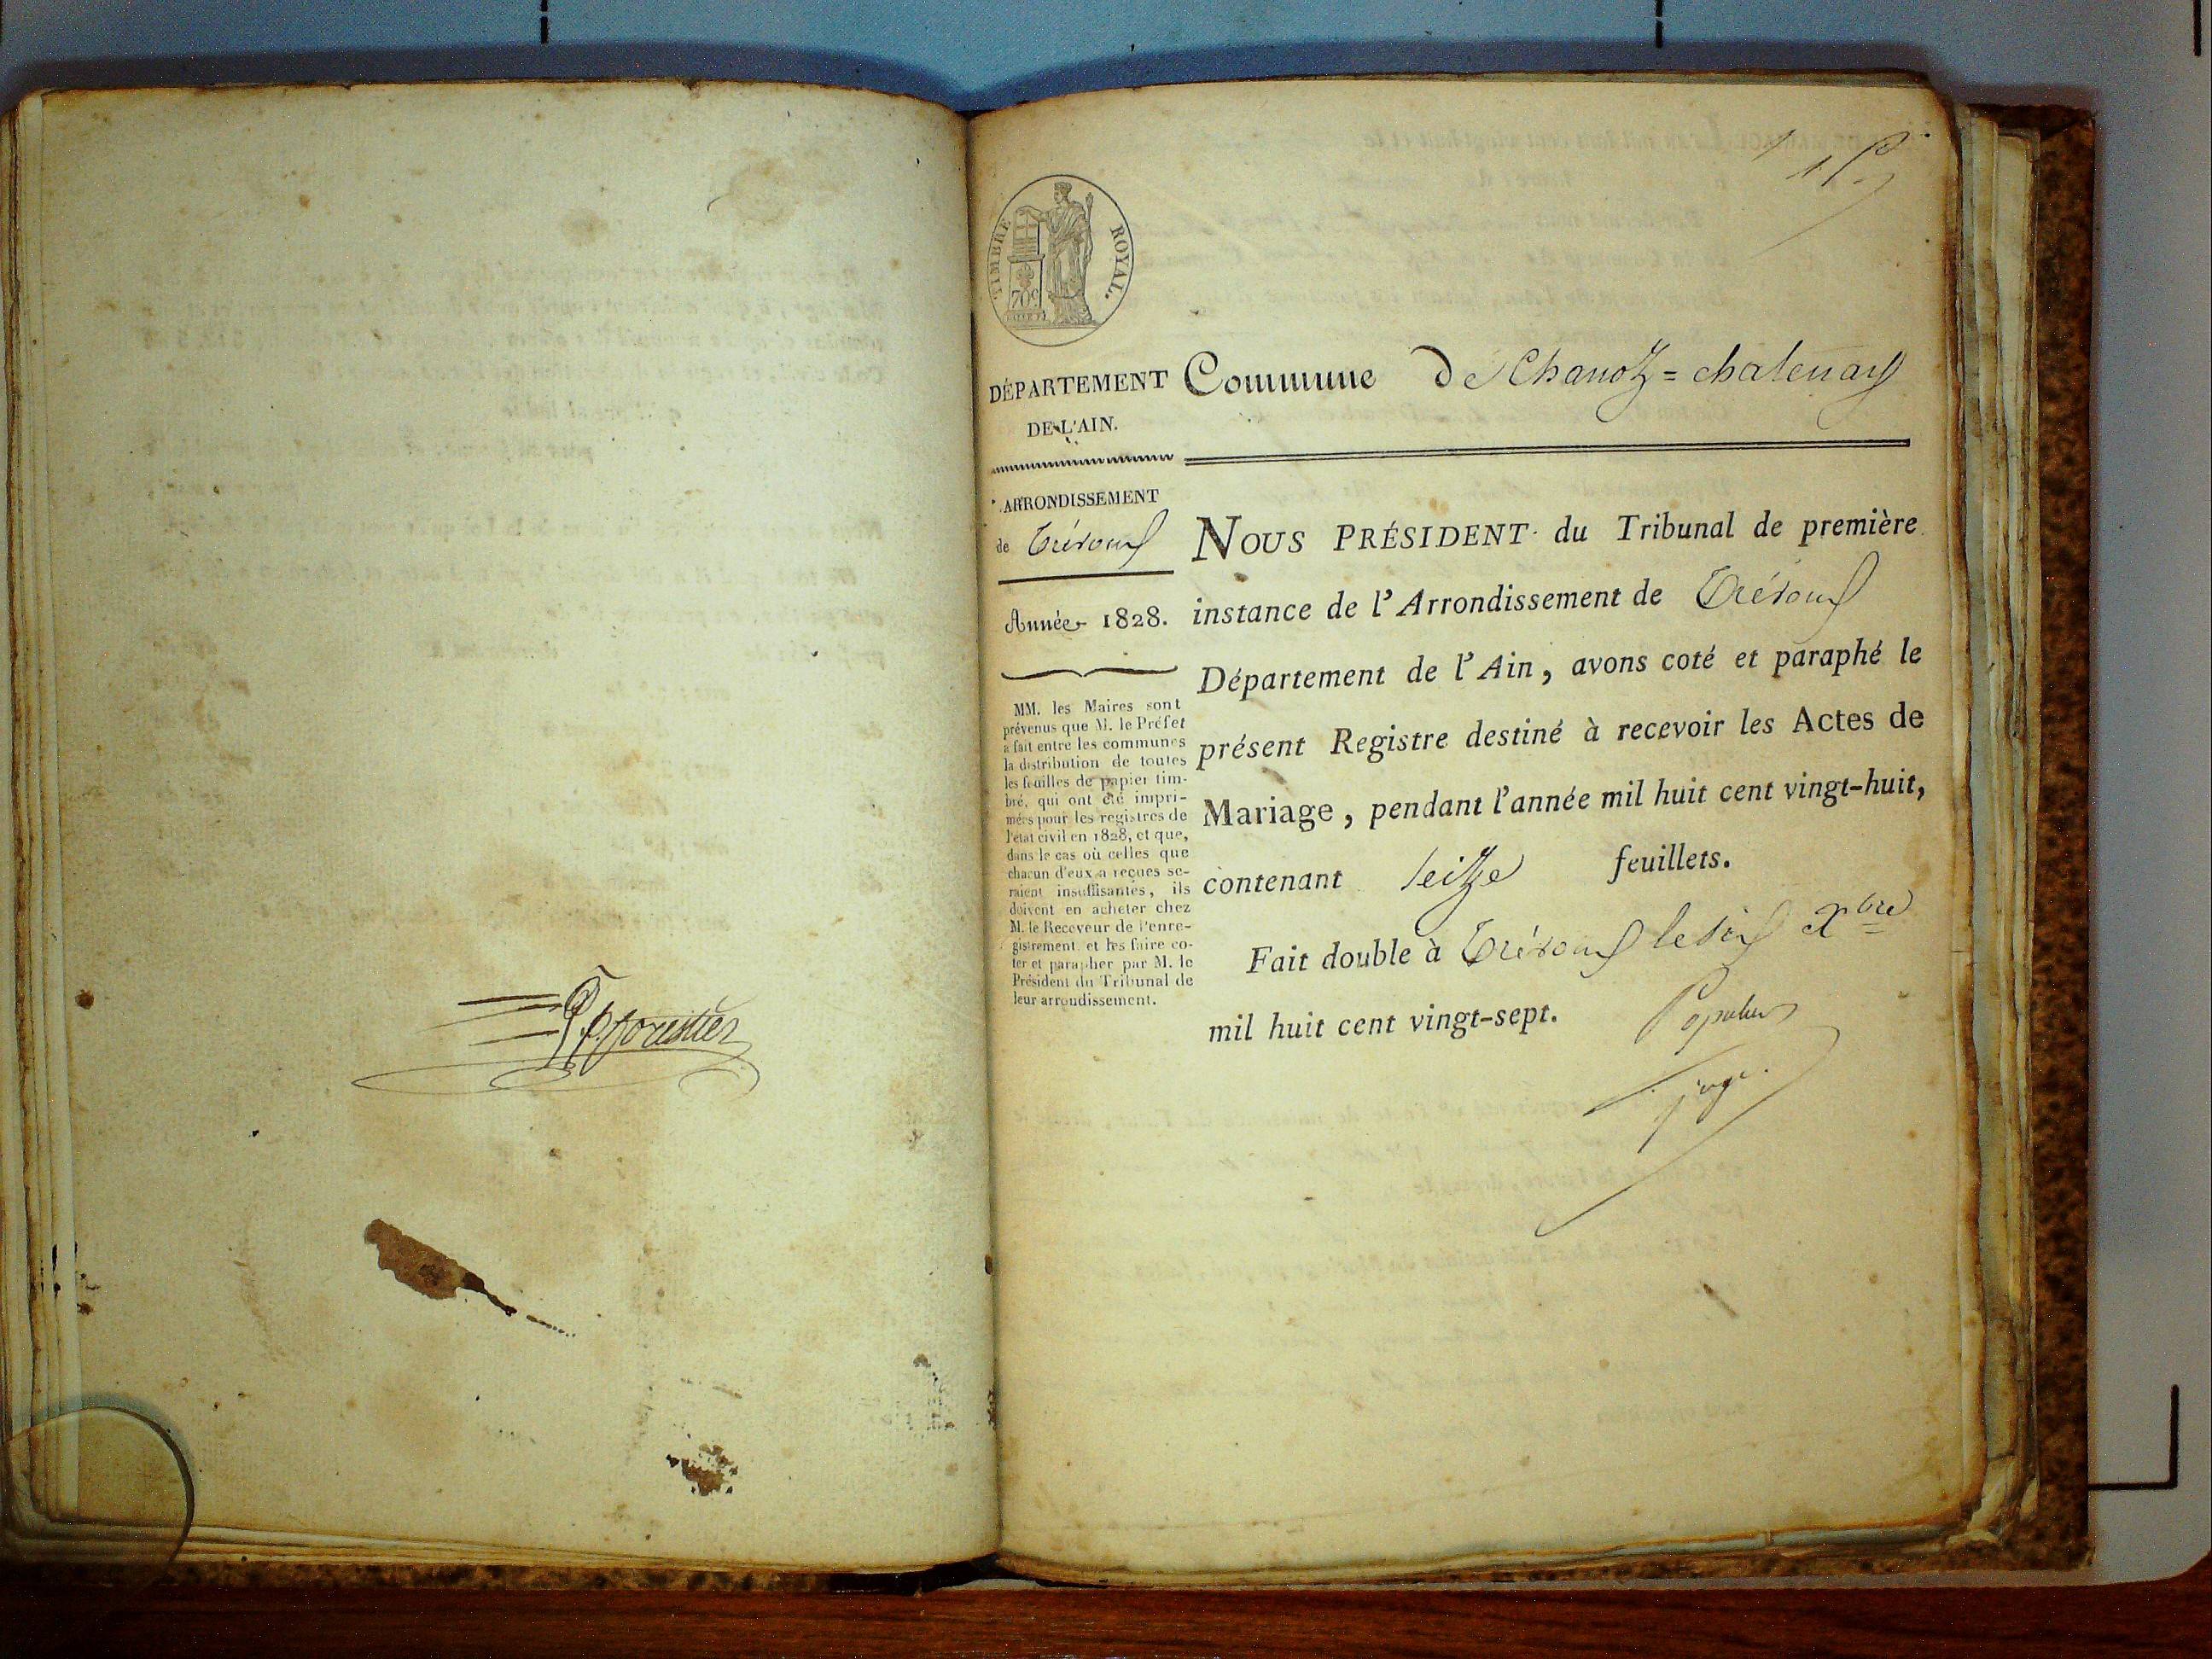 Forestier
TIMBRE ROYAL.
70c
DÉPARTEMENT
DE L'AIN.
Commune de Chanoz=chatenay
ARRONDISSEMENT
de Trévoux
Année 1828.
MM. les Maires sont
prévenus que M. le Préfet
a fait entre les communes
la distribution de toutes
les feuilles de papier tim-
bré, qui ont été impri-
mées pour les registres de
l'état civil en 1828, et que,
dans le cas où celles que
chacun d'eux a reçues se-
raient insuffisantes, ils
doivent en acheter chez
M. le Receveur de l'enre-
gistrement et les faire co-
ter et parapher par M. le
Président du Tribunal de
leur arrondissement.
NOUS PRÉSIDENT du Tribunal de première
instance de l'Arrondissement de Trévoux
Département de l'Ain, avons coté et paraphé le
présent Registre destiné à recevoir les Actes de
Mariage, pendant l'année mil huit cent vingt-huit,
contenant seitze feuillets.
Fait double à Trévoux le six Xbre
mil huit cent vingt-sept.
juge